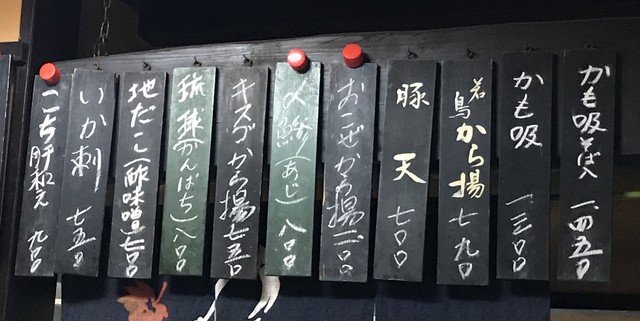 かも吸そば入 一、四五〇
かも吸 一、三〇〇
若鳥から揚 七九〇
豚天 七〇〇
おこぜから揚 一、〇〇〇
〆鯵(あじ) 八〇〇
キスゴから揚 七五〇
琉球(かんぱち) 八〇〇
地だこ(酢味噌) 七〇〇
いか刺 七五〇
こち肝和え 九〇〇